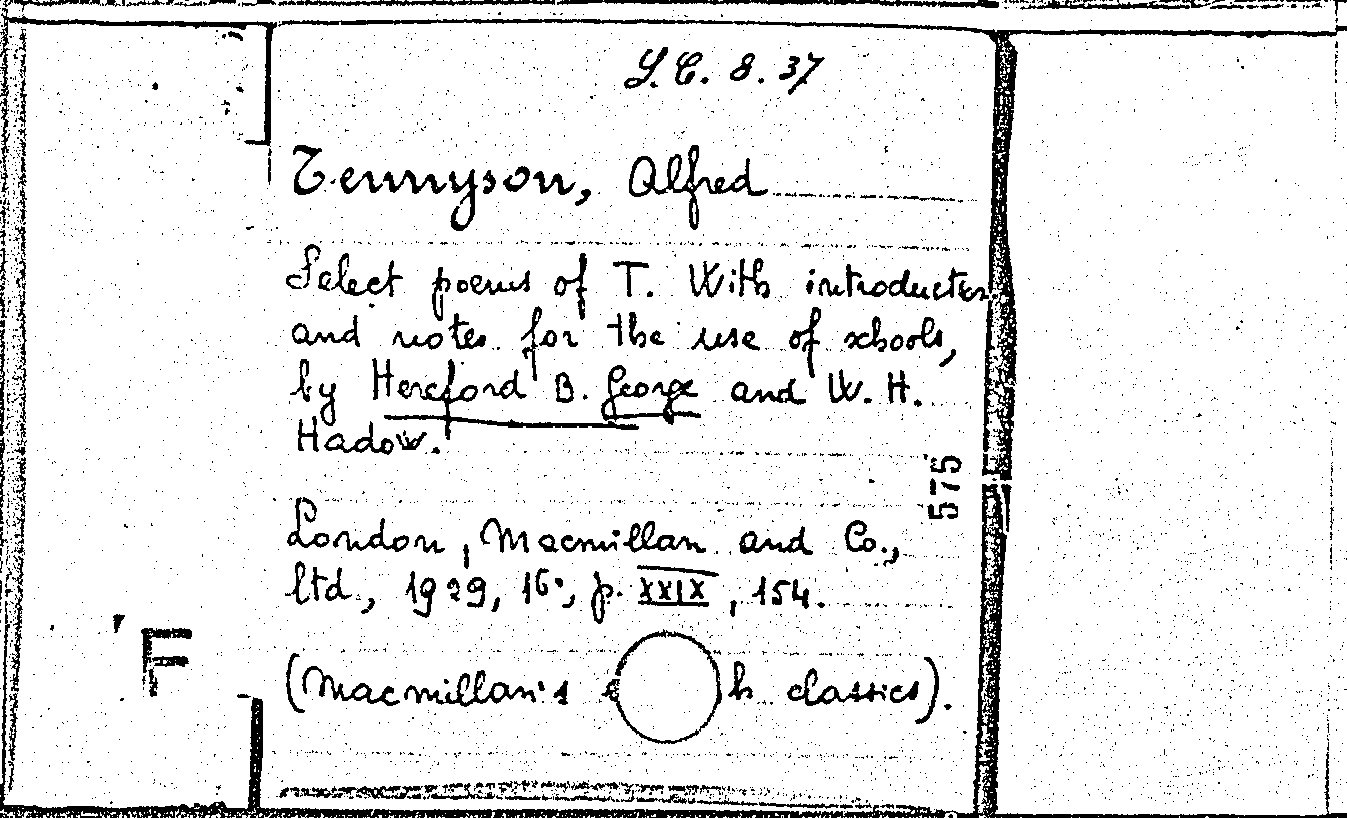 S.C. 8. 37
Tennyson, Alfred
Select poems of T. With introduction
and notes for the use of schools,
by Hereford B. George and W. H.
Hadow.
575
London, Macmillan and Co.,
ltd., 1929, 16°, p. XXIX, 154.
F
(Macmillan's h classics).